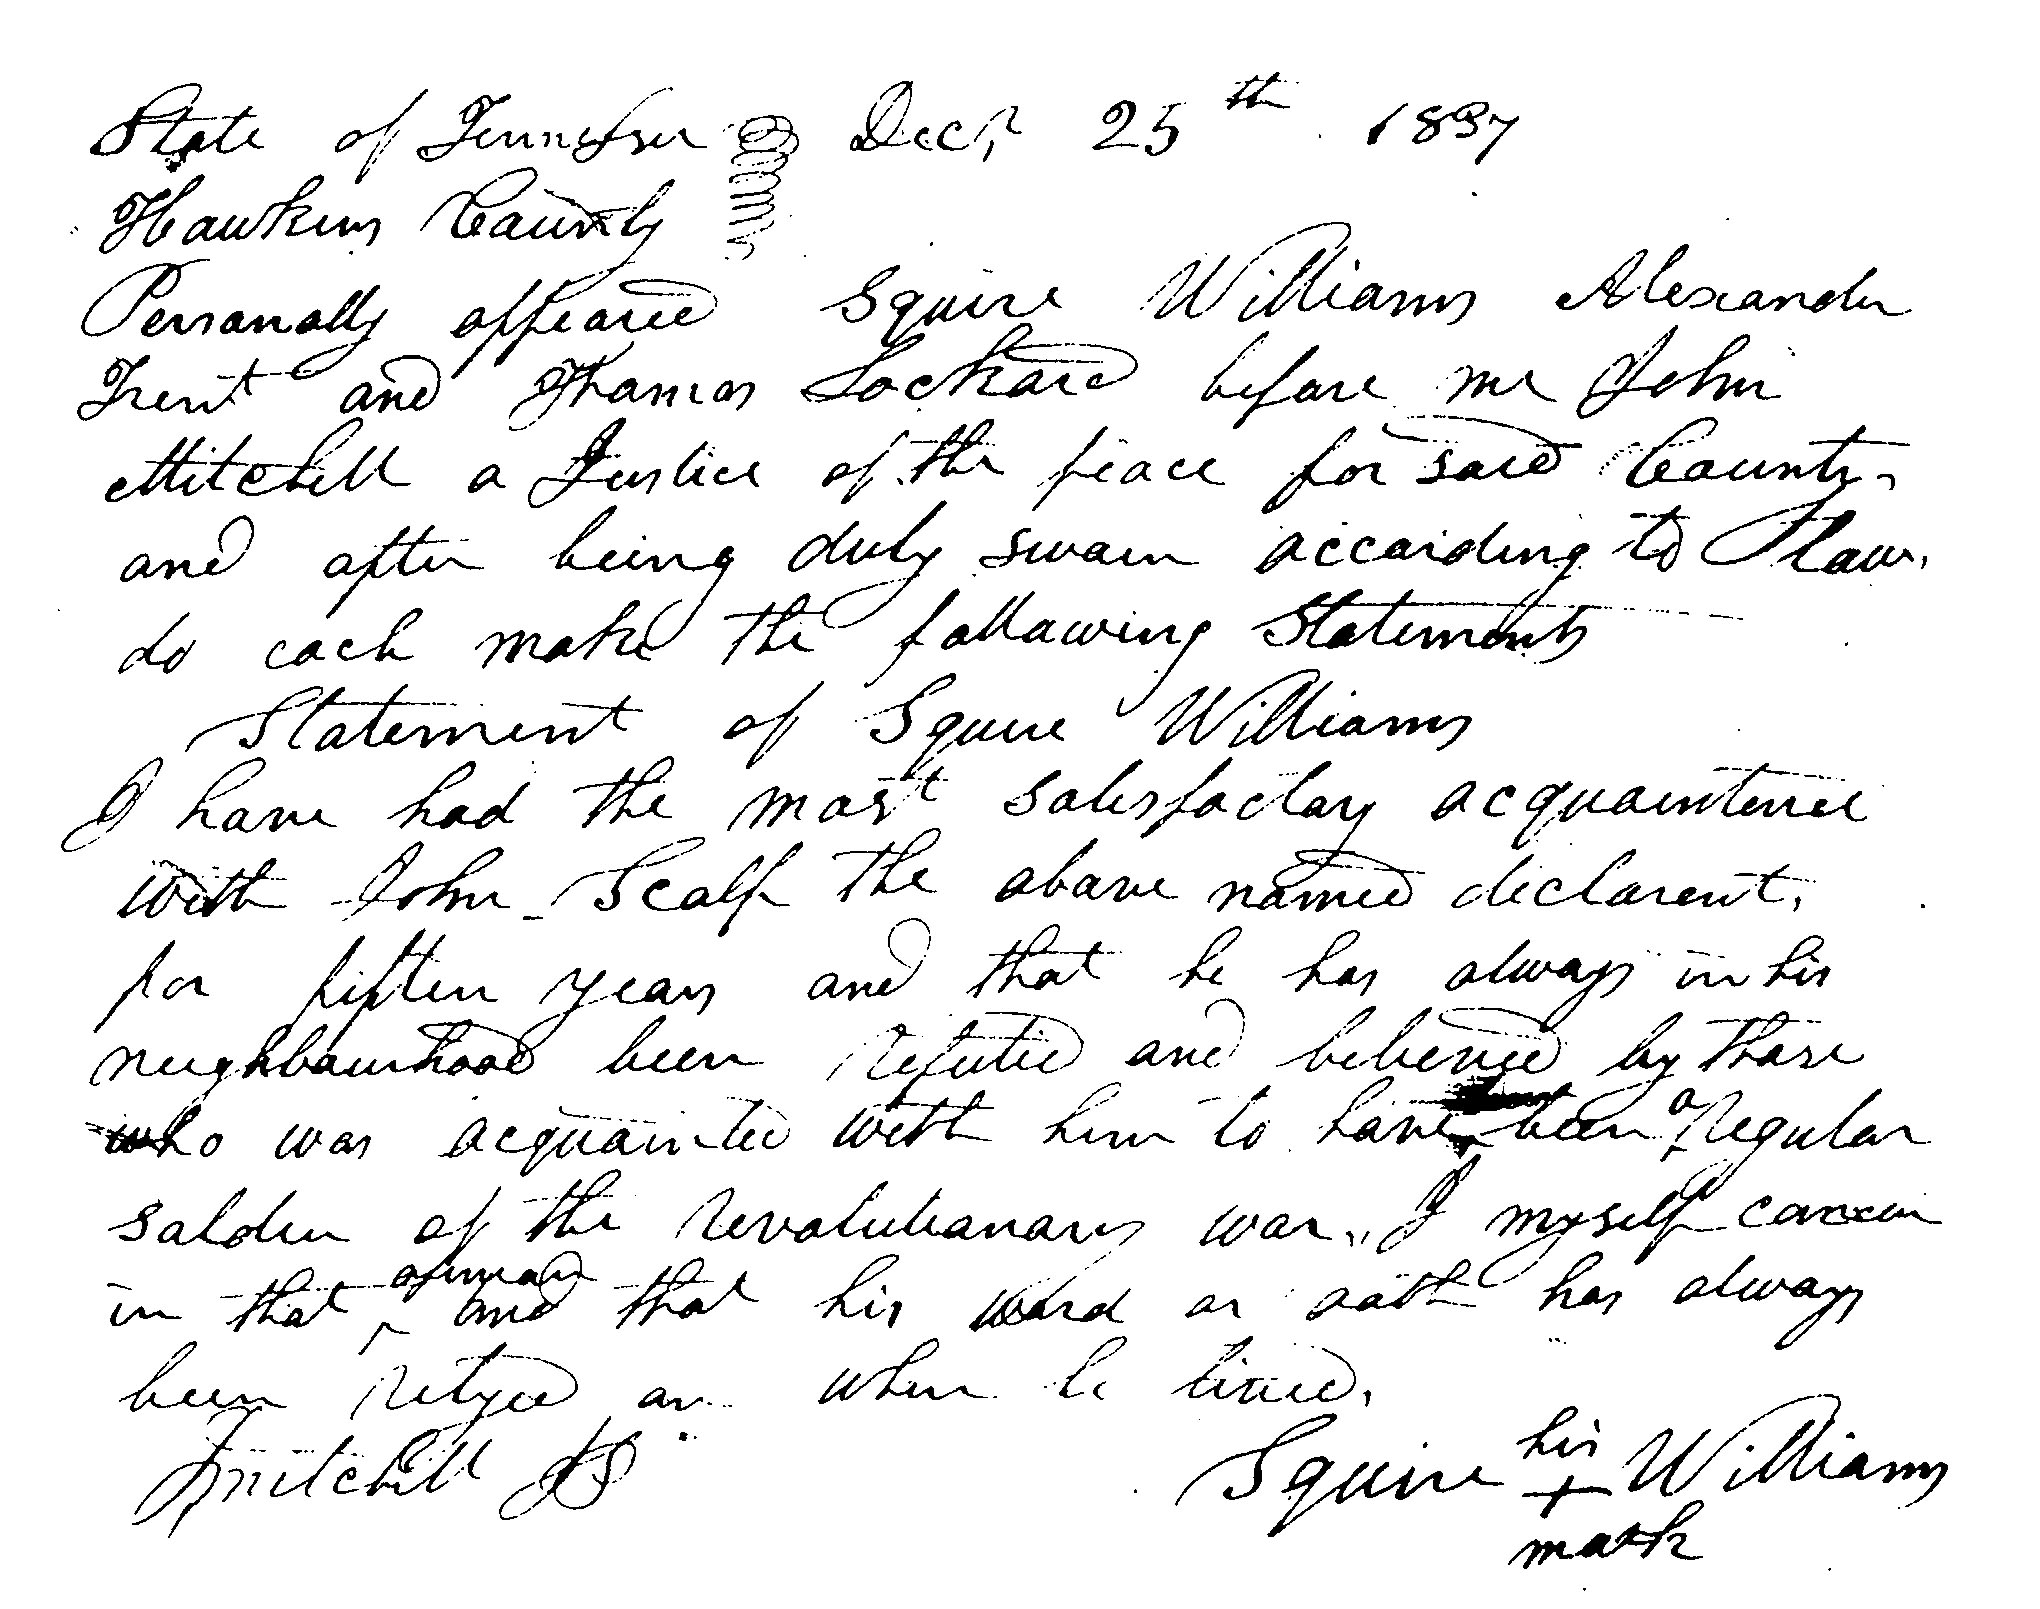 State of Tennessee Decr 25th 1837
Hawkins County
Personally appeared Squire Williams Alexander
Trent and Thomas Lockard before me John
Mitchell a Justice of the peace for said County
and after being duly sworn according to law.
do each make the following Statements
Statement of Squire Williams
I have had the most satisfactory acquaintence
with John Scalf the above named declarent,
for fiften years and that he has always in his
neighbourhood been reputed and believed by those
who was acquainted with him to have been a regular
solder of the revolutionary war, I myself concur
in that opinion and that his word or oath has always
been relyed on when he lived,
Jmitchell JP Squire his + Williams
mark